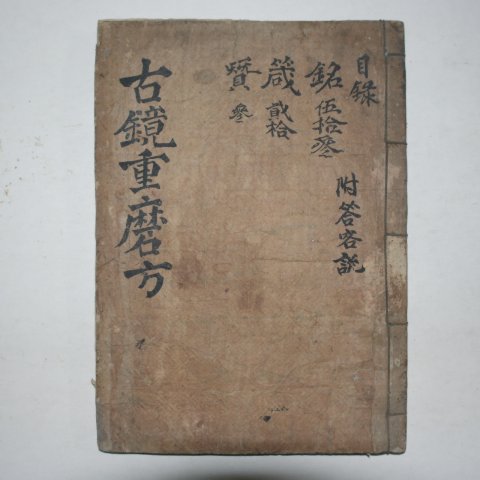 目錄
銘 伍拾叅
箴 貳拾
贊 叅
附答客說
古鏡重磨方